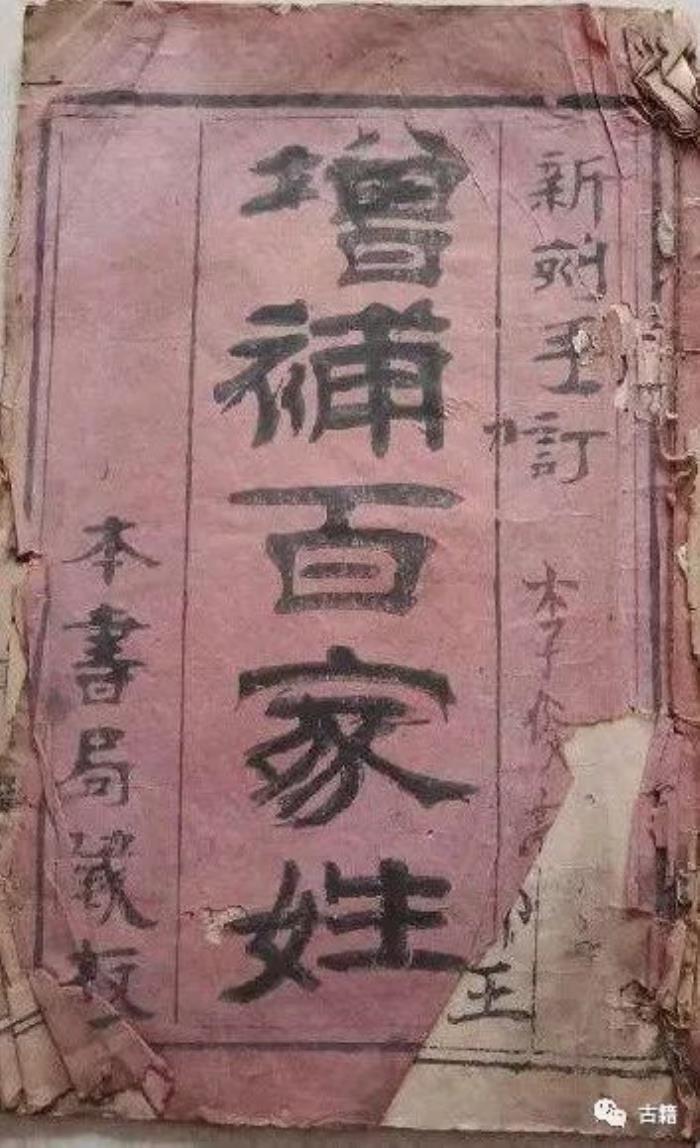 新刻手訂
增補百家姓
本書局藏板
王
古籍